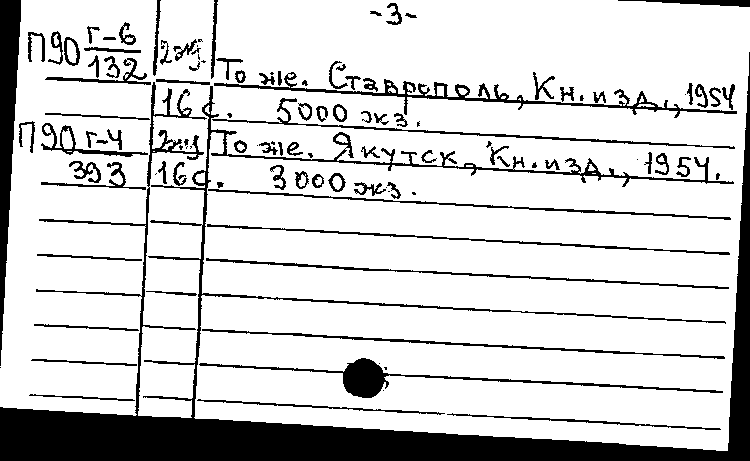 -3-
П90 Г-6 2экз.
132 То же. Ставрополь, Кн. изд., 1954
16 с. 5000 экз.
П90 Г-4 2экз То же. Якутск, Кн. изд., 1954.
393 16 с. 3000 экз.